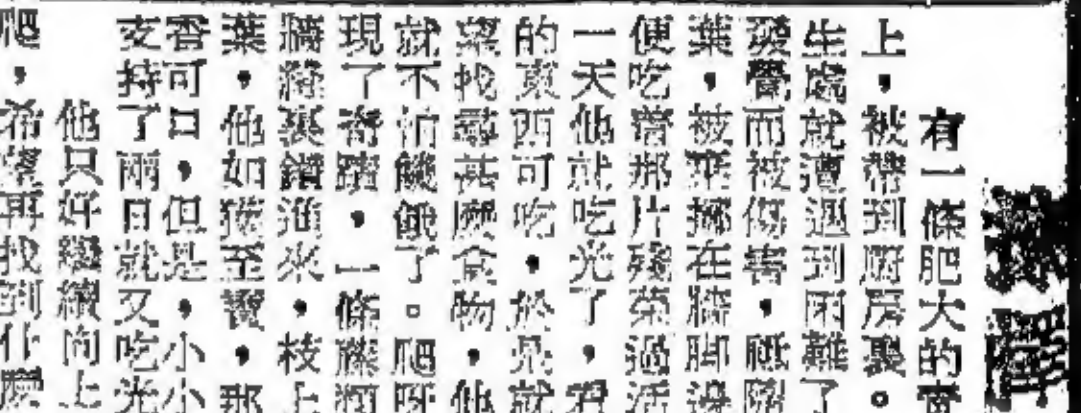 有一條肥大的青
上,被帶到廚房裏。
生處就遭遇到困難了
發覺而被傷害,
葉,被棄擲在牆脚邊
便吃着那片殘菜過活
一天他就吃光了,
的東西可吃,於是就
望找尋甚麼食物,他
就不怕饑餓了。爬呀
現了奇蹟,一條藤
牆裏鑽進來,枝上
葉,他如獲至寶,那
香可口,但是,小小
支持了兩日就又吃光
他只好繼續向上
爬,希望再找到什麼